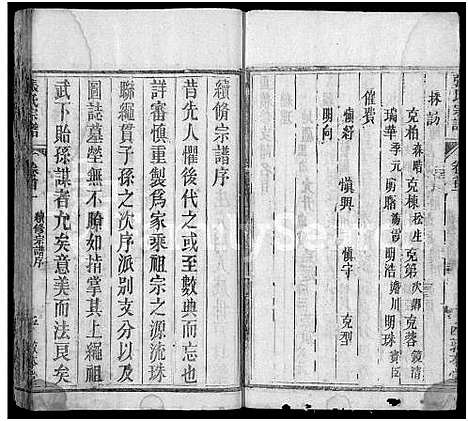 採訪
克柏 森暘
克棟 松生
克第 次卿
克蓉 鏡清
瑞華 季元
明璐
明浩 濬川
明珠 實臣
催費
慎綸
慎興
慎守
克型
明向
續修宗譜序
昔先人懼後代之或至數典而忘也
詳審慎重製為家乘祖宗之源流珠
聯繩貫子孫之次序派別支分以及
圖誌墓塋無不瞭如指掌其上繩祖
武下貽孫謀者允矣意美而法良矣
張氏宗譜
卷首
續修宗譜序